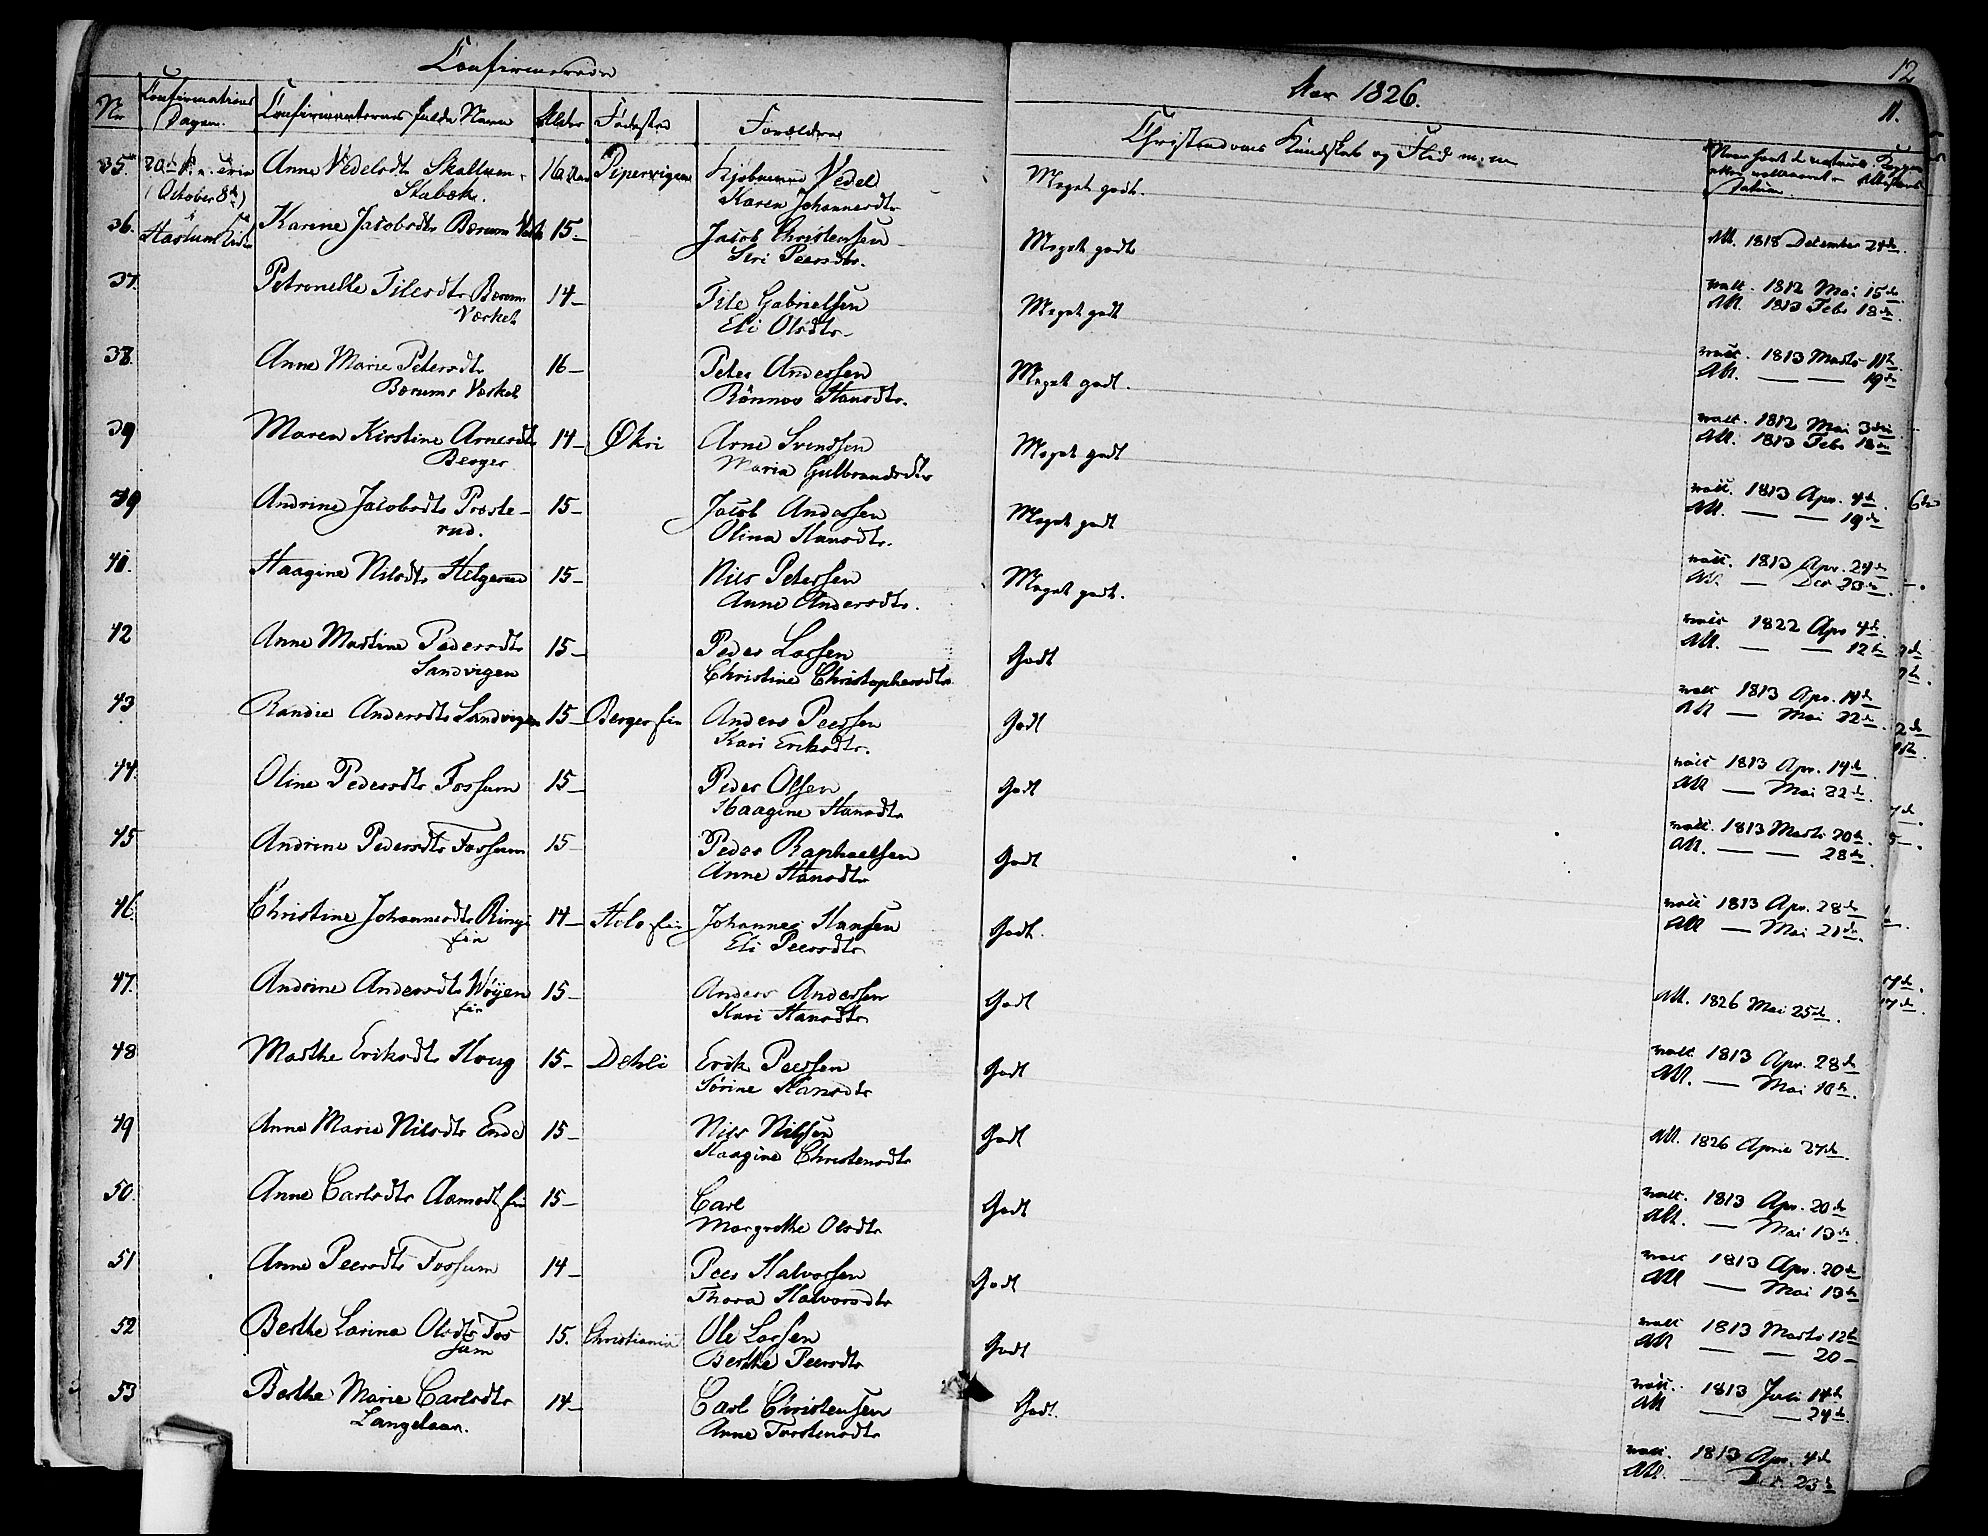 Confirmerede
Aar 1826.
12
11.
Nr
Confirmations Dagen.
Confirmanternes fulde Navn
Alder
Fødested
Forældre
Christendoms Kundskab og Flid m. m
35.
(October 8de)
Anne Vedelsdtr Skallum
Stabek.
16 Aar
Pipervigen
Vedel
Karen Johannesdtr
Meget godt.
36.
Haslum Kirke
Karine Jacobsdtr Bærums Værk
15-
Jacob Christensen
Siri Peersdtr.
Meget godt
Att. 1818 December 24de.
37.
Petronelle Tilesdtr Bærum
Værket
14-
Tile Gabrielsen
Eli Olsdtr.
Meget godt
natt. 1812 Mai 15de.
Att. 1813 Febr 18de.
38.
Anne Marie Petersdtr
Bærums Værket
16-
Peter Anderssen
Rønnov Hansdtr.
Meget godt.
natt. 1813 Marts 11te.
Att. — — 19de
39
Maren Kirstine Arnesdtr
Berger
14-
Økri
Arne Svendsen
Maria Gulbrandsdtr
Meget godt
natt. 1812 Mai 3die
Att. 1813 Febr 18de
Andrine Jacobsdtr Preste-
rud.
15-
Jacob Anderssen
Olina Hansdtr.
Meget godt
natt. 1813 Apr. 4de.
Att. — — 19de
41.
Haagine Nilsdtr Helgerud
15-
Nils Peterssen
Anne Andersdtr.
Meget godt.
natt. 1813 Apr. 24de
Att. — Dec 23de.
42
Anne Martine Pedersdtr
Sandvigen
15-
Peder Larsen
Christine Christophersdtr
Godt
natt 1822 Apr 4de.
Att. — — 12te
43
Randie Andersdtr Sandvigen
15-
Berger Eie
Anders Peersen
Kari Eriksdtr.
Godt
natt 1813 Apr. 14de
Att — Mai 22de.
44
Oline Pedersdtr Fossum
15-
Peder Olsen
Haagine Hansdtr
Godt
natt 1813 Apr. 14de.
Att — Mai 22de.
45
Andrine Pedersdtr Fossum
15-
Peder Raphaelsen
Anne Hansdtr
Godt
natt. 1813 Marts 20de.
Att. — — 28de.
46.
Christine Johannesdtr Ringi
Eie
14-
Hslo Eie
Johannes Hansen
Eli Peersdtr
Godt.
natt 1813 Apr. 28de
Att — Mai 21de.
47.
Andrine Andersdtr Wøyen
Eie
15-
Anders Anderssen
Kari Hansdtr
Godt
Att. 1826 Mai 25de.
48
Marthe Eriksdtr Houg
15-
Dehli
Erik Peersen
Sørine Hansdtr
Godt
natt 1813 Apr. 28de
Att. — Mai 10de.
49
Anne Marie Nilsdtr Ende
15-
Nils Nilssen
Haagine Christensdtr
Godt
Att. 1826 Aprie 27de.
50.
Anne Carlsdtr Aamodt Eie
15-
Carl
Margrethe Olsdtr
Godt
natt. 1813 Apr. 20de
Att. — Mai 13de.
51
Anne Peersdtr Fossum
14-
Peer Halvorsen
Thora Halvorsdtr
Godt
natt 1813 Apr. 20de
Att — Mai 13de
52
Berthe Larine Olsdtr Fos
sum
15.
Christiania
Ole Larsen
Berthe Peersdtr
Godt
natt 1813 Marts 12te
Att — — 20-
53
Berthe Marie Carlsdtr
Langelaar.
14-
Carl Christensen
Anne Torstensdtr
Godt.
natt. 1813 Juli 14de
Att — — 24de.
natt. 1813 Apr. 4de
Att. Dec. 23de